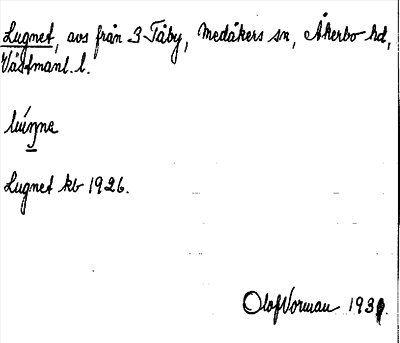 Lugnet, avs från 3 Tåby, Medåkers sn, Åkerbo hd,
Västmanl. l.
lúŋne
Lugnet kb 1926.
Olof Vorman 1931.